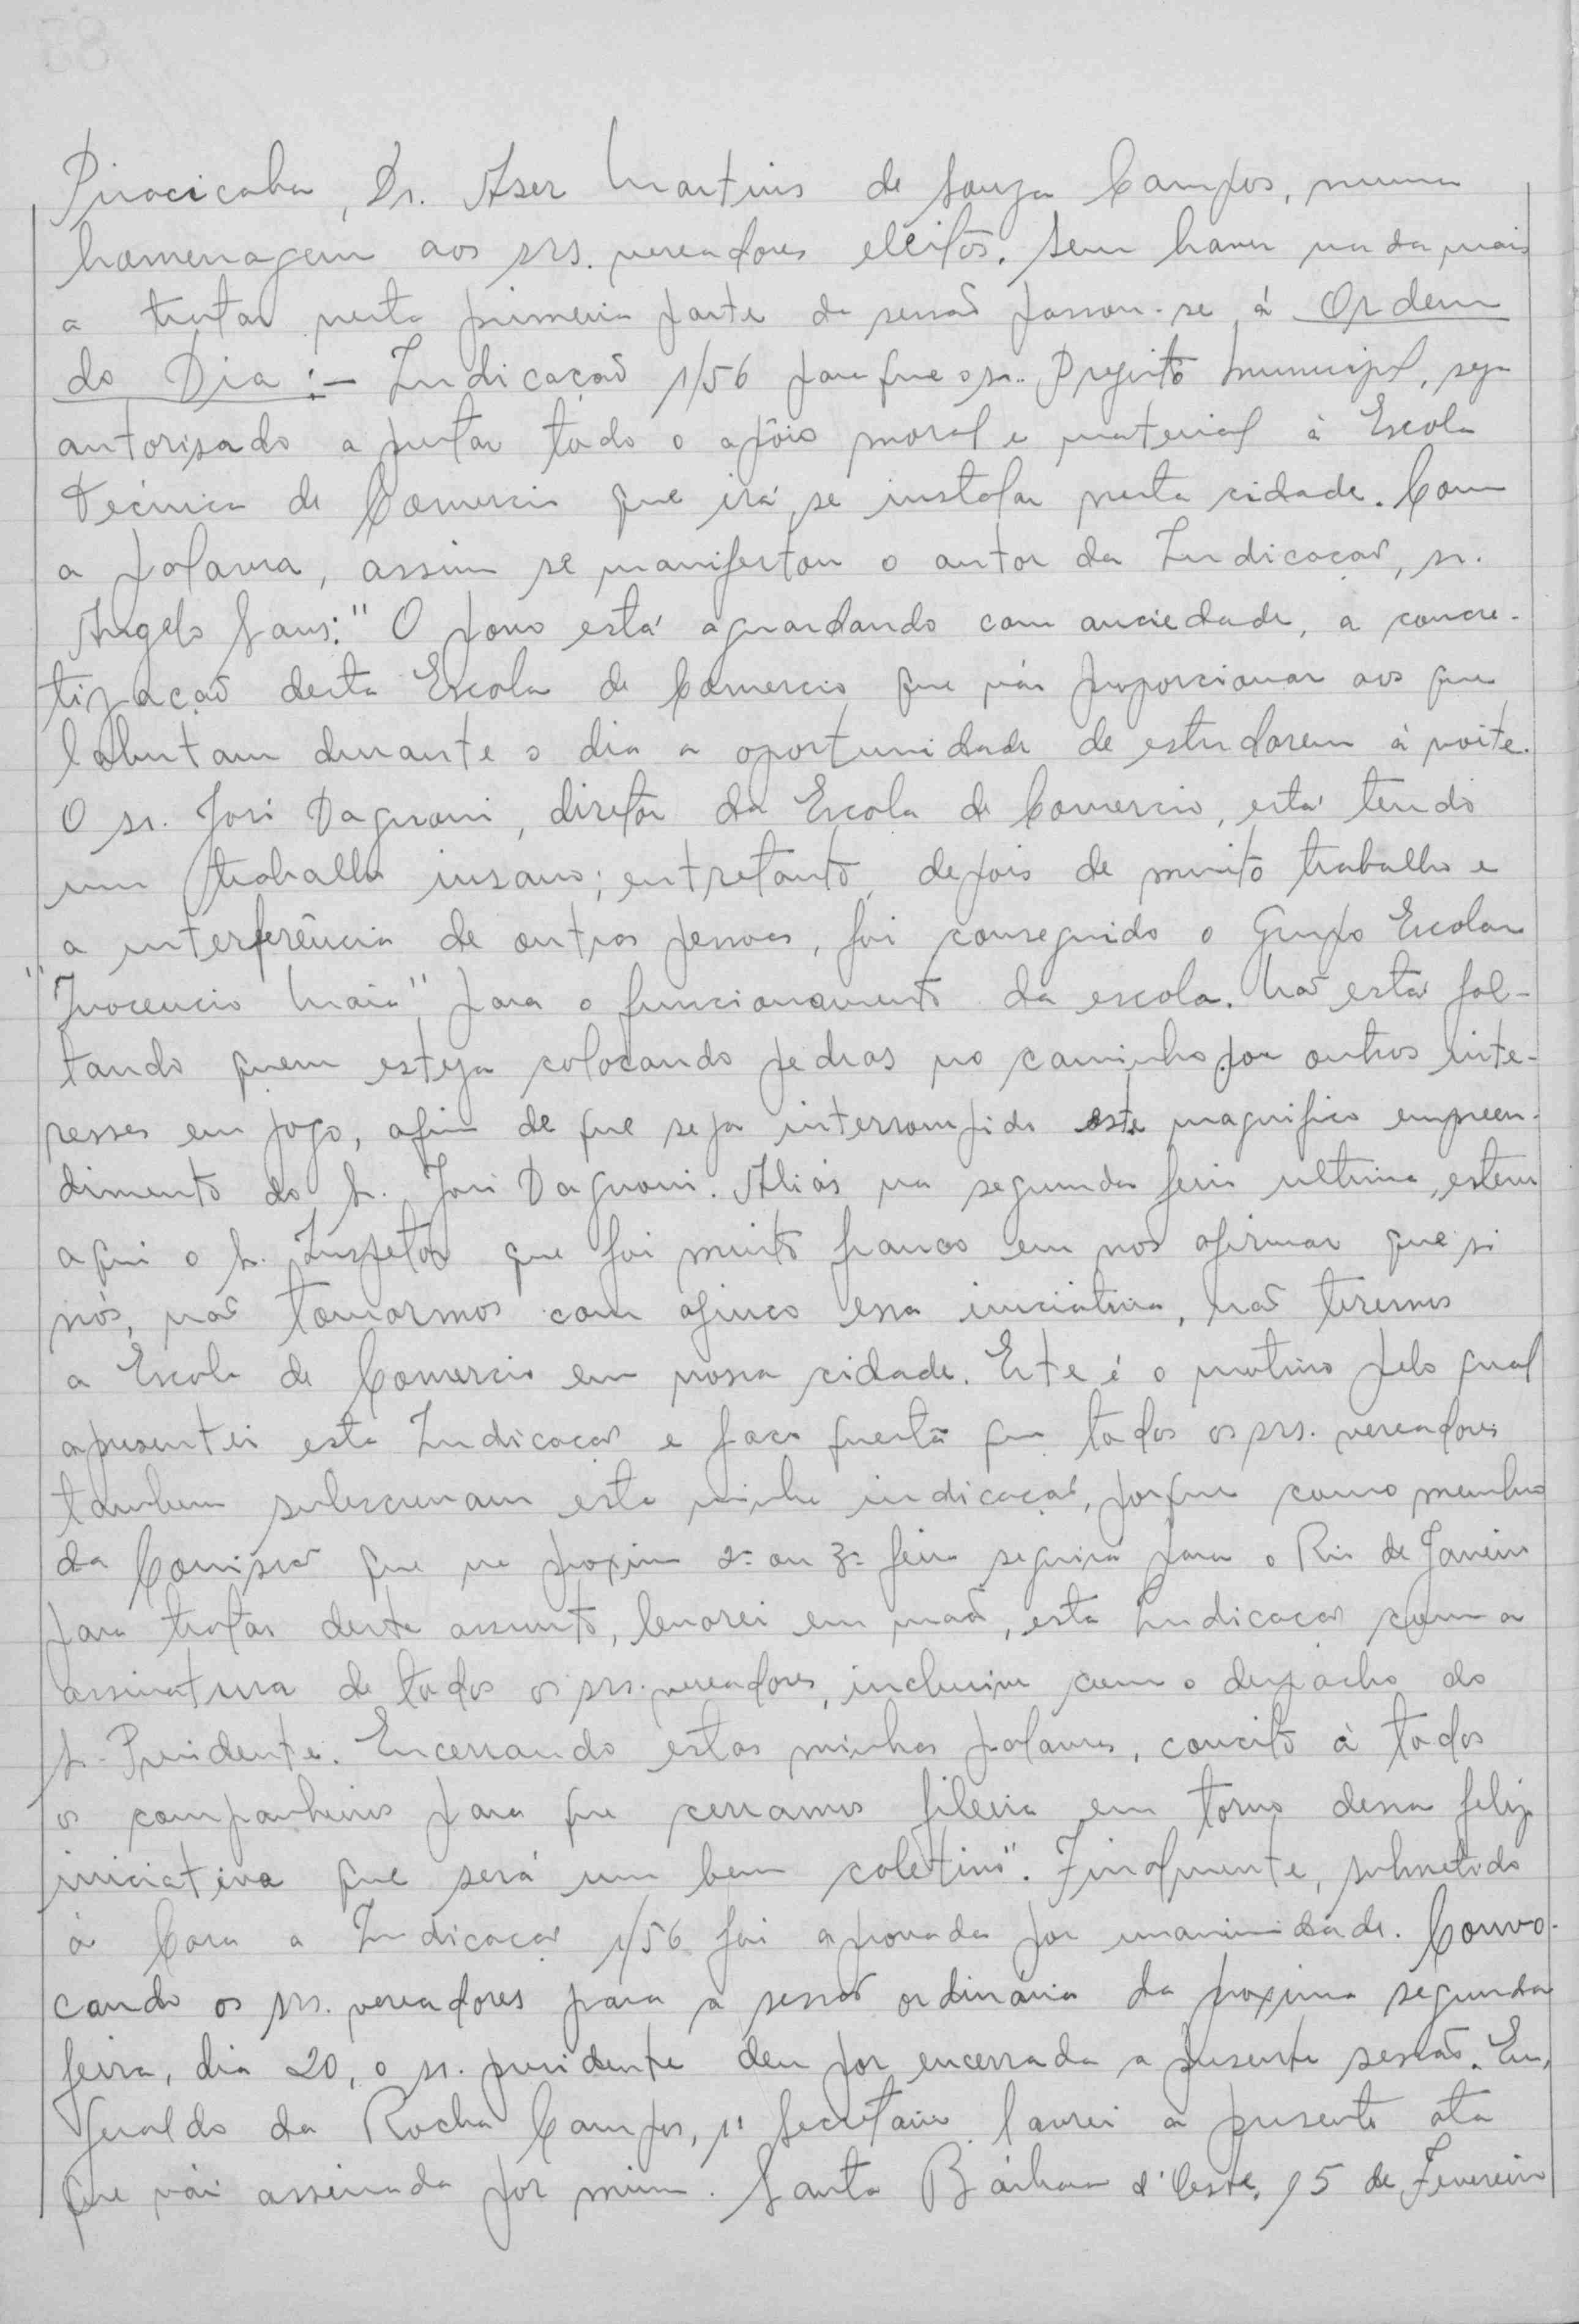 Piracicaba, Dr. Aser Martins de Souza Campos, numa
homenagem aos srs. vereadores eleitos. Sem haver nada mais
a tratar nesta primeira parte da sessão passou-se á Ordem
do Dia:- Indicação 1/56 para que o sr. Prefeito Municipal, seja
autorisado a prestar todo o apôio moral e material à Escola
Técnica de Comercio que irá se instalar nesta cidade. Com
a palavra, assim se manifestou o autor da Indicação, sr.
Angelo Sans: "O povo está aguardando com anciedade, a concre-
tização desta Escola de Comercio que vái proporcionar aos que
labutam durante o dia a oportunidade de estudarem à noite.
O sr. José Dagnoni, diretor da Escola de Comercio, está tendo
um trabalho insano; entretanto, depois de muito trabalho e
a interferência de outras pessoas, foi conseguido o Grupo Escolar
"Inocencio Maia" para o funcionamento da escola. Não está fal-
tando quem esteja colocando pedras no caminho por outros inte-
resses em jogo, afim de que seja interrompido este magnifico empreen-
dimento do Sr. José Dagnoni. Aliás na segunda feira ultima, esteve
aqui o Sr. Inspetor que foi muito franco em nos afirmar que si
nós, não tomarmos com afinco essa iniciativa, não teremos
a Escola de Comercio em nossa cidade. Este é o motivo pelo qual
apresentei esta Indicação e faço questã que todos os srs. vereadores
tambem subscrevam esta minha indicação, porque como membro
da Comissão que na proxima 2ª ou 3ª feira seguirá para o Rio de Janeiro
para tratar deste assunto, levarei em mão, esta Indicação com a
assinatura de todos os srs. vereadores, inclusive com o despacho do
Sr. Presidente. Encerrando estas minhas palavras, concito à todos
os companheiros para que cerramos fileira em torno dessa feliz
iniciativa que será um bem coletivo". Finalmente, submetido
à Casa a Indicação 1/56 foi aprovada por unanimidade. Convo-
cando os srs. vereadores para a sessão ordinária da proxima segunda
feira, dia 20, o sr. presidente deu por encerrada a presente sessão. Eu,
Geraldo da Rocha Campos, 1º Secretario lavrei a presente ata
que vái assinada por mim. Santa Bárbara d'Oeste, 15 de Fevereiro